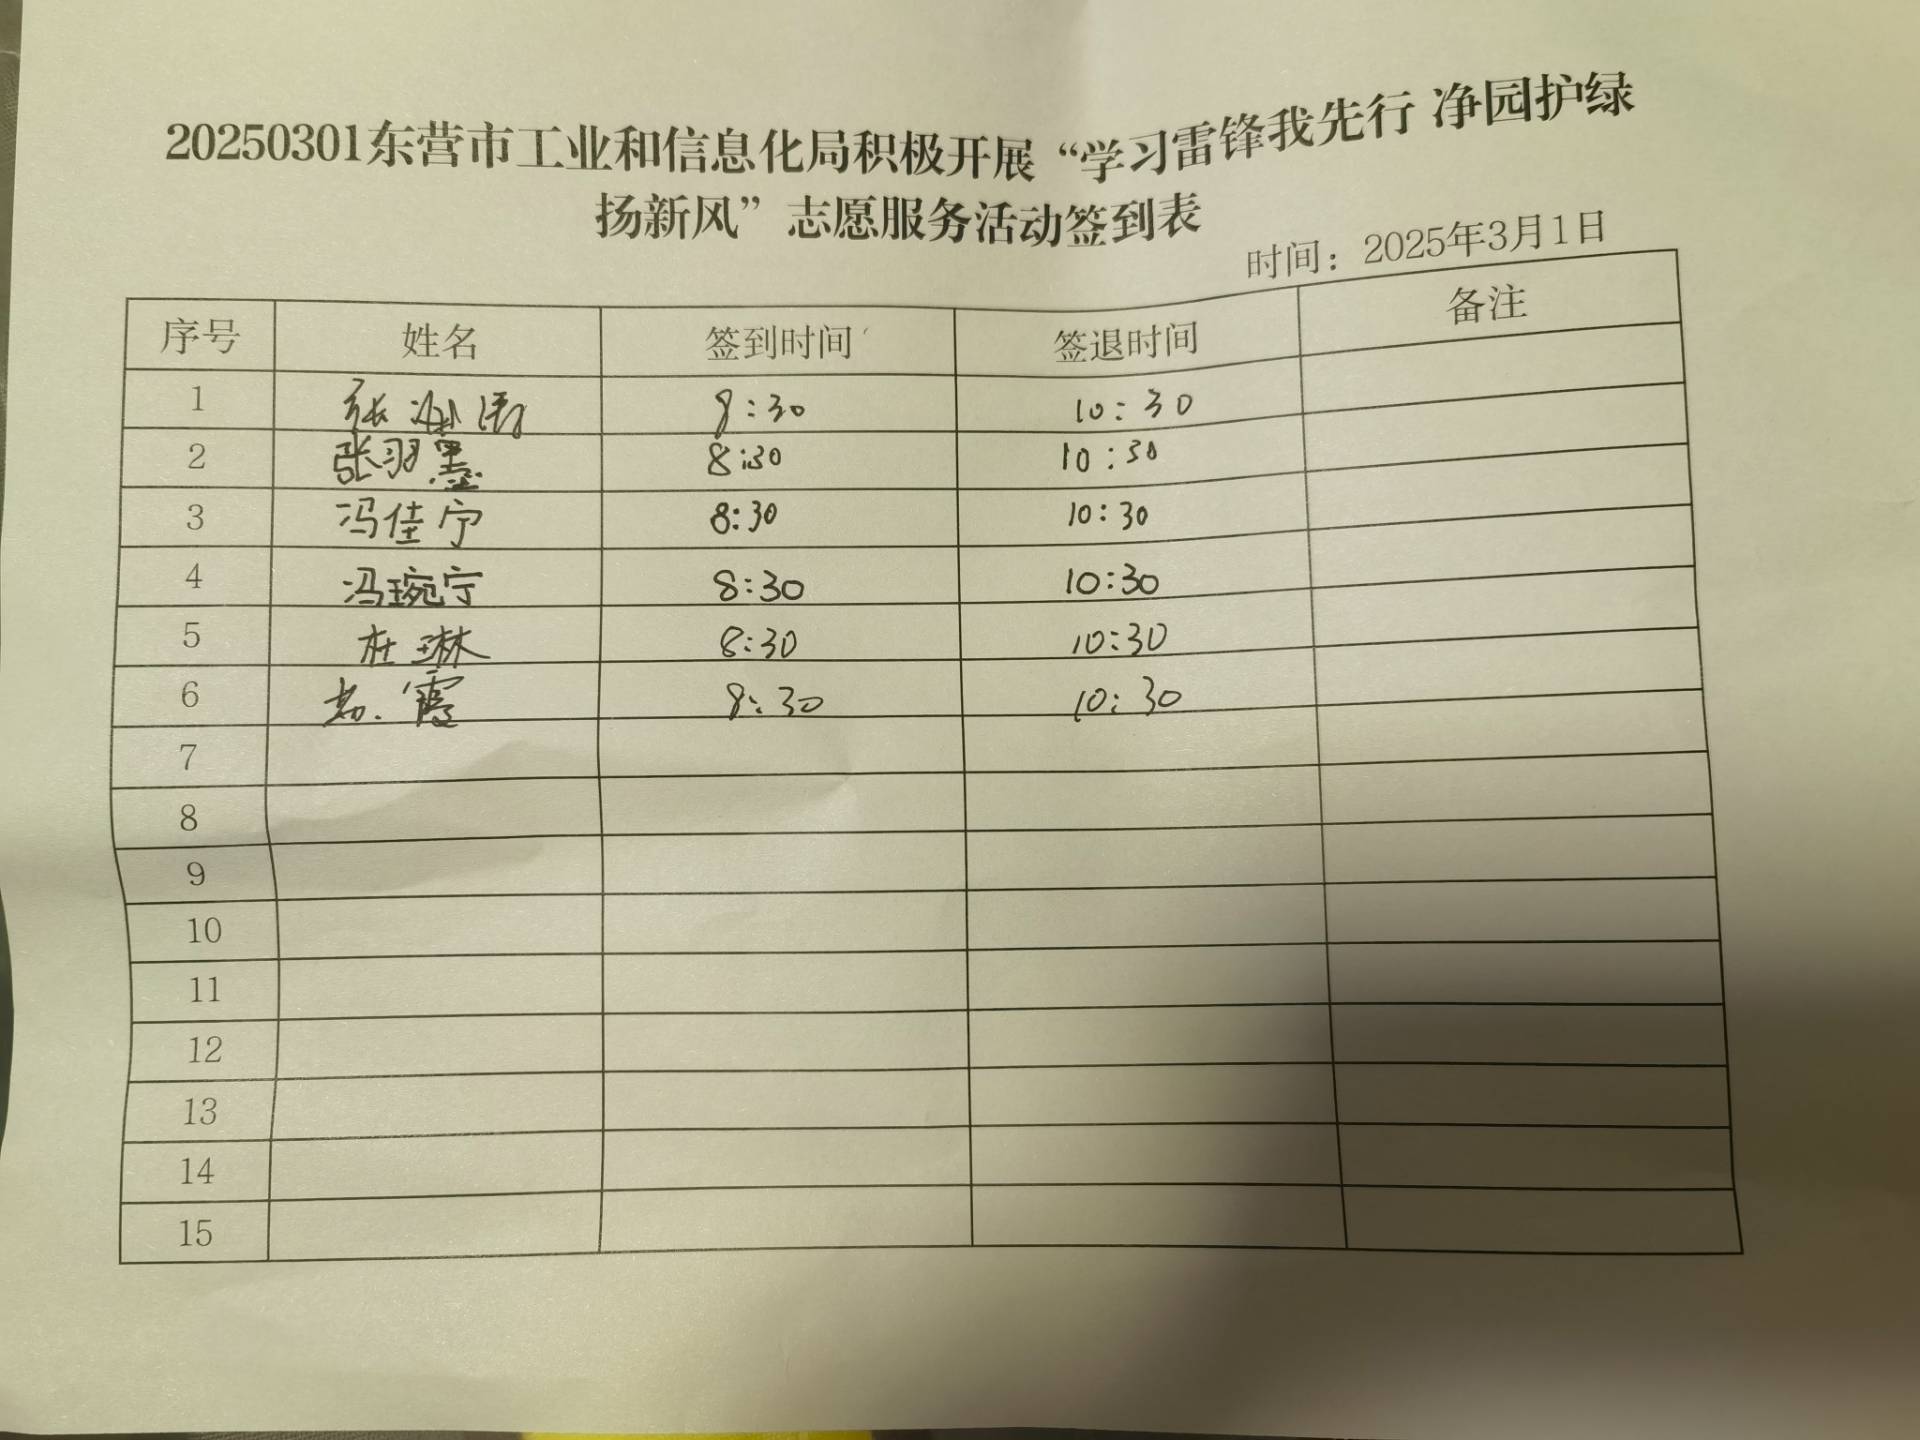 20250301东营市工业和信息化局积极开展“学习雷锋我先行 净园护绿
扬新风”志愿服务活动签到表
时间：2025年3月1日
序号 姓名 签到时间 签退时间 备注
1 张 8:30 10:30
2 张羽墨 8:30 10:30
3 冯佳宁 8:30 10:30
4 冯琬宁 8:30 10:30
5 杜琳 8:30 10:30
6 霞 8:30 10:30
7
8
9
10
11
12
13
14
15